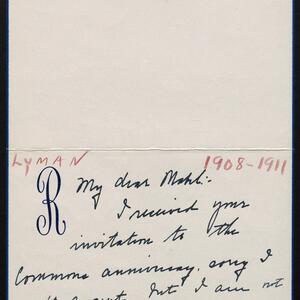 LYMAN 1908-1911
R My dear
I received your
invitation to the
Commons anniversary, sorry I
but I am not